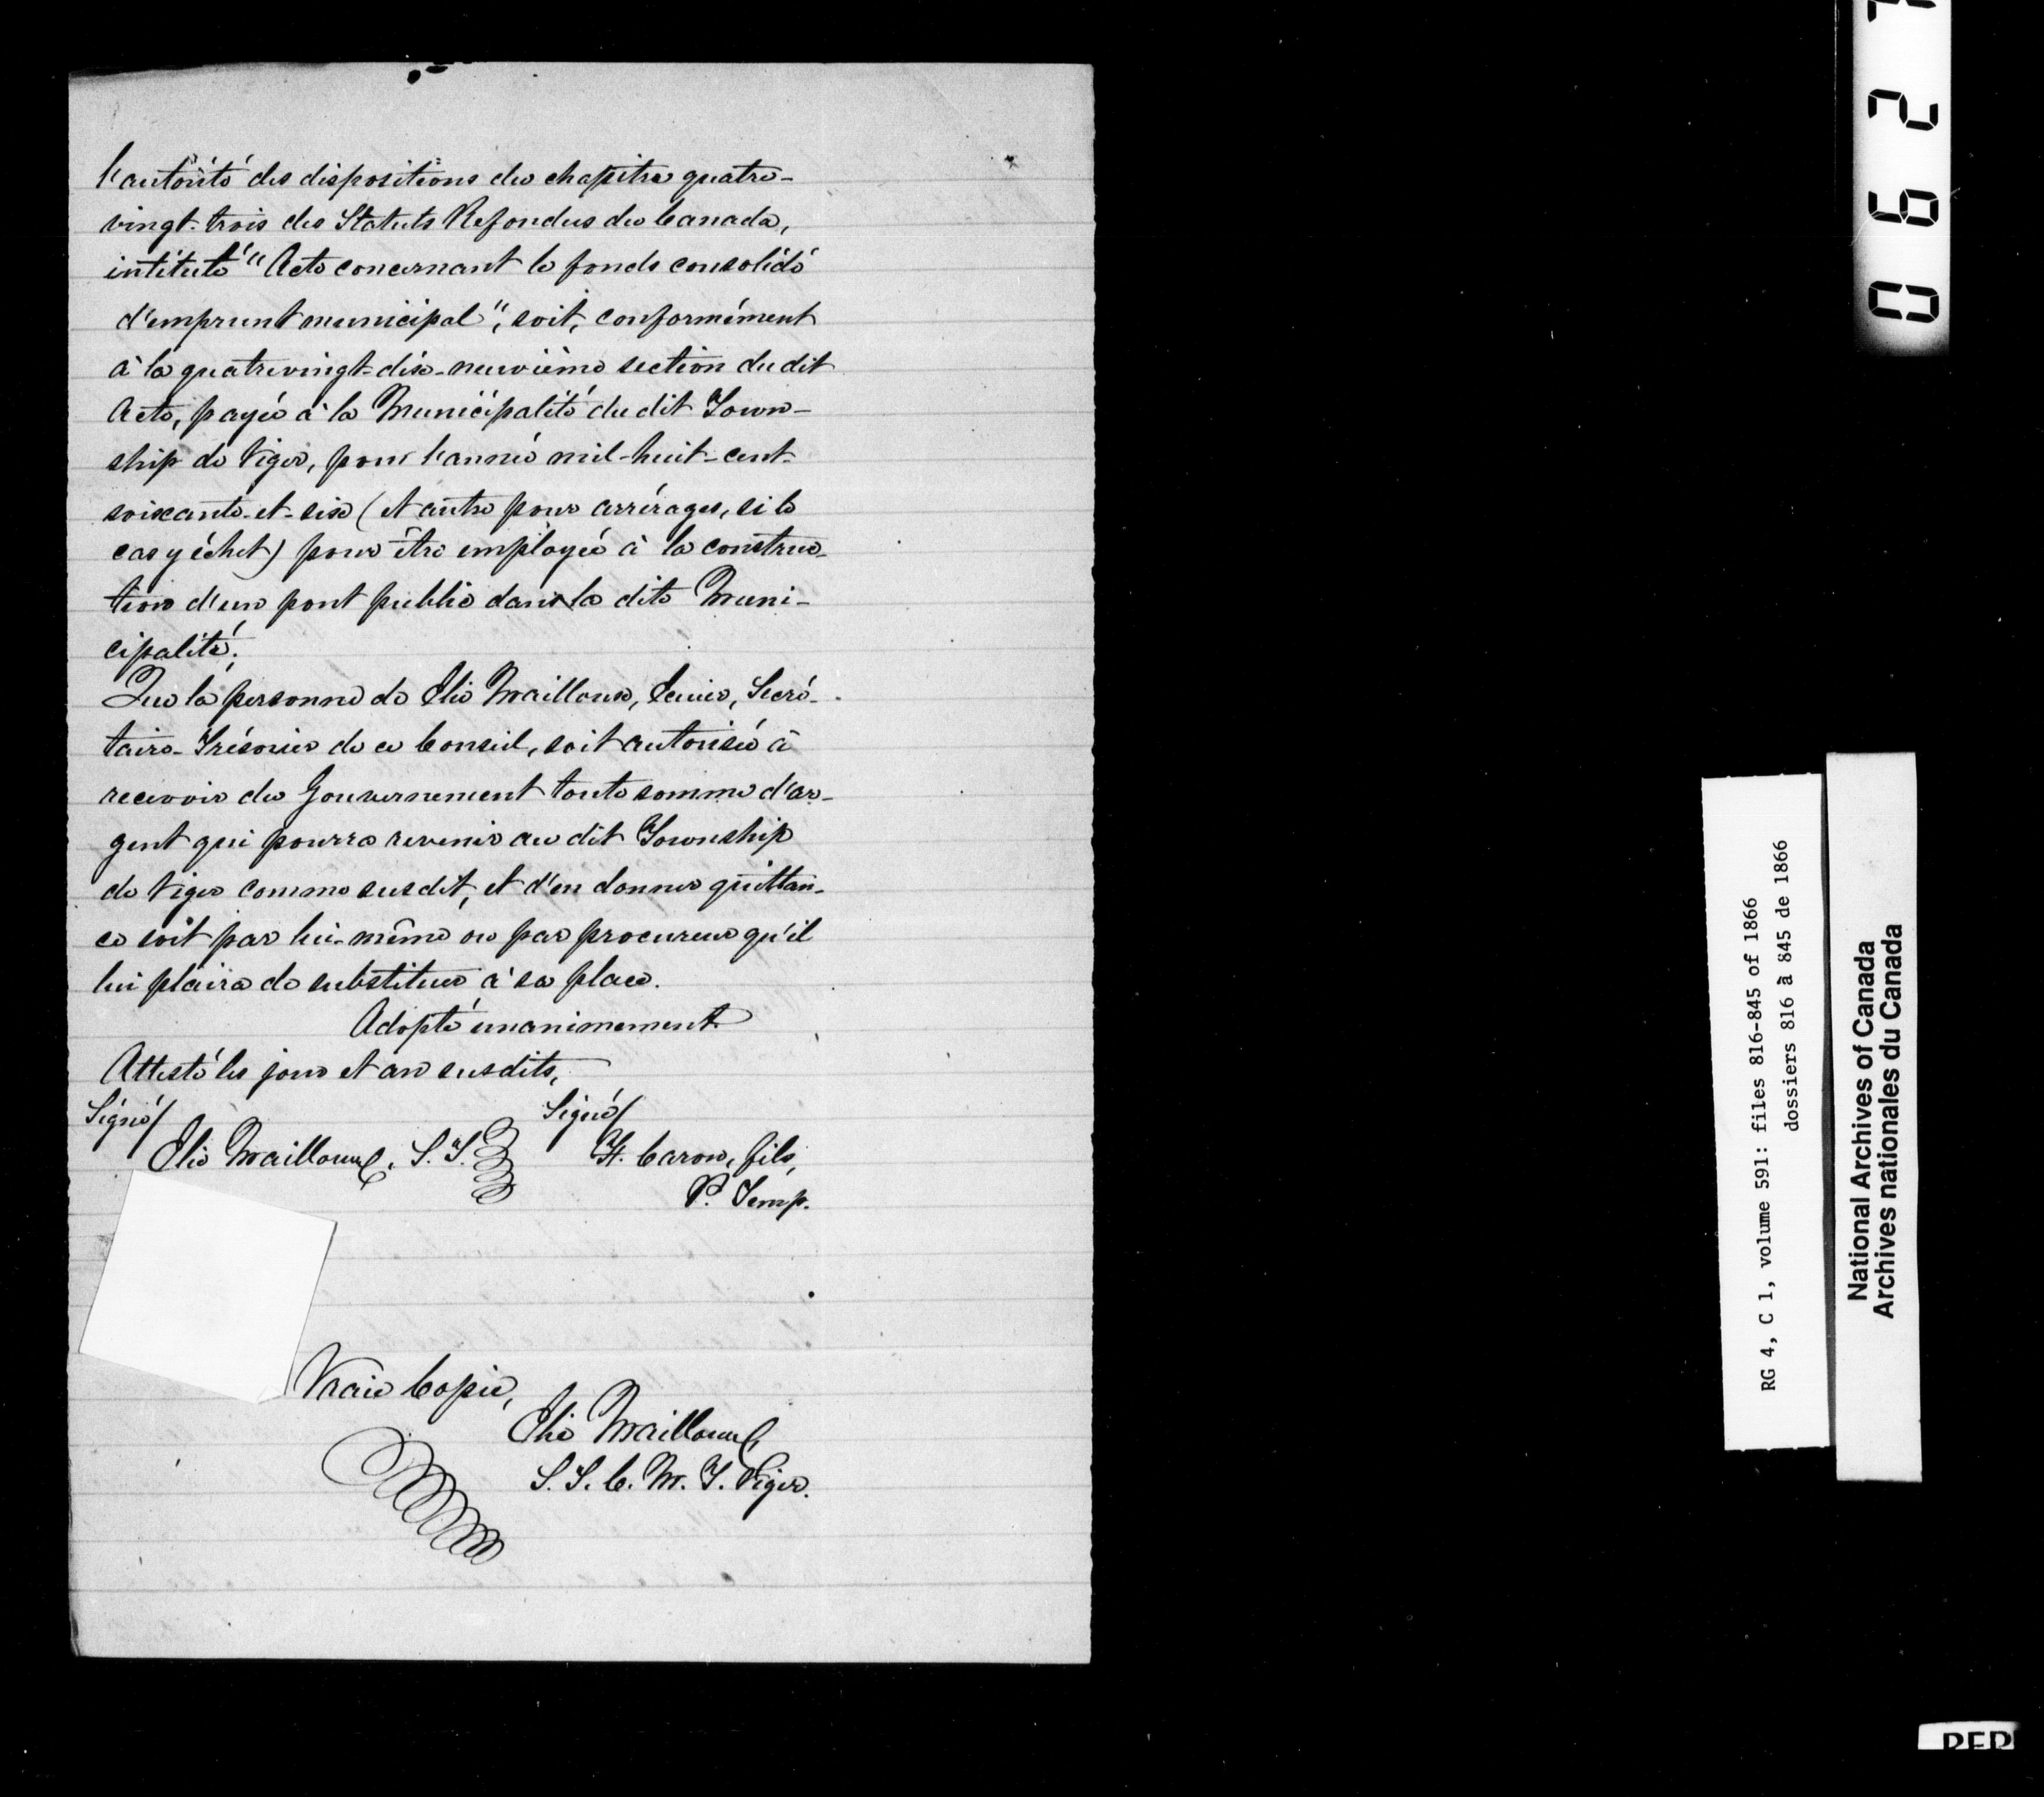 l'autorité des dispositions du chapitre quatre-
vingt-trois des Statuts Refondus du Canada,
intitulé "Acte concernant le fonds consolidé
d'emprunt municipal", soit, conformément
à la quatrevingt-dix-neuvième section du dit
Acte, payée à la Municipalité du dit Town-
ship de Viger, pour l'année mil-huit-cent-
soixante-et-six (et autre pour arrérages, si le
cas y échet) pour être employée à la construc-
tion d'un pont public dans la dite Muni-
cipalité;
Que la personne de Elie Mailloux, Ecuier, Secré-
taire-Trésorier de ce Conseil, soit autorisée à
recevoir du Gouvernement toute somme d'ar-
gent qui pourra revenir au dit Township
de Viger comme susdit, et d'en donner quittan-
ce soit par lui-même ou par procureur qu'il
lui plaira de substituer à sa place.
Adopté unanimement
Attesté les jour et an susdits,
Signé/ Signé/
Elie Mailloux, S. T. H. Caron, fils,
P. Temp.
Vraie Copie,
Elie Mailloux
S. T. C. M. T. Viger.
0627
RG 4, C 1, volume 591: files 816-845 of 1866
dossiers 816 à 845 de 1866
National Archives of Canada
Archives nationales du Canada